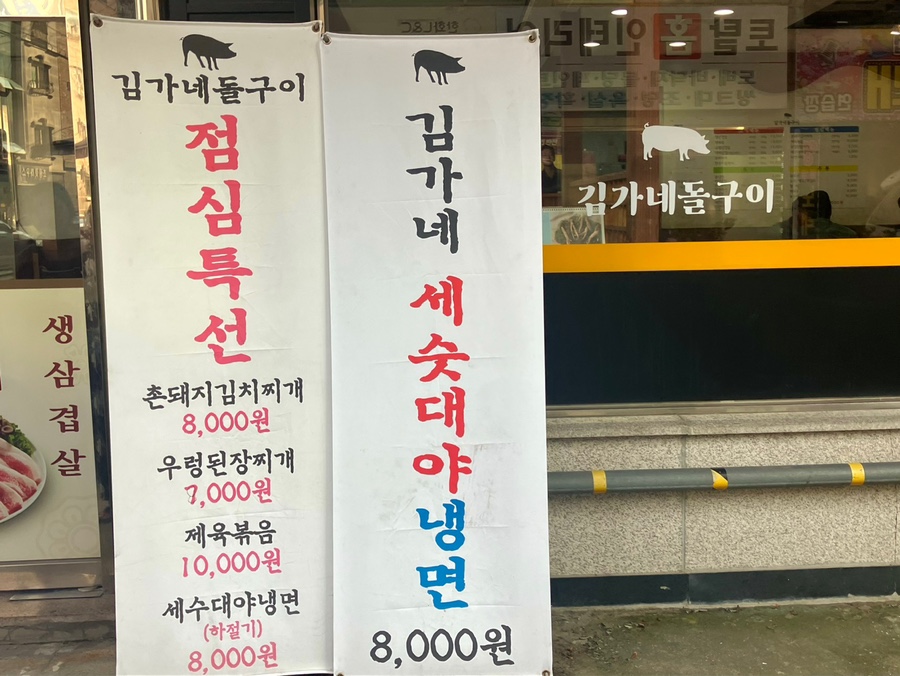 김가네돌구이
점심특선
촌돼지김치찌개
8,000원
우렁된장찌개
7,000원
제육볶음
10,000원
세수대야냉면
(하절기)
8,000원
김가네
세숫대야냉면
8,000원
생삼겹살
김가네돌구이
토탈홈인테리어
한화L&C
연습장